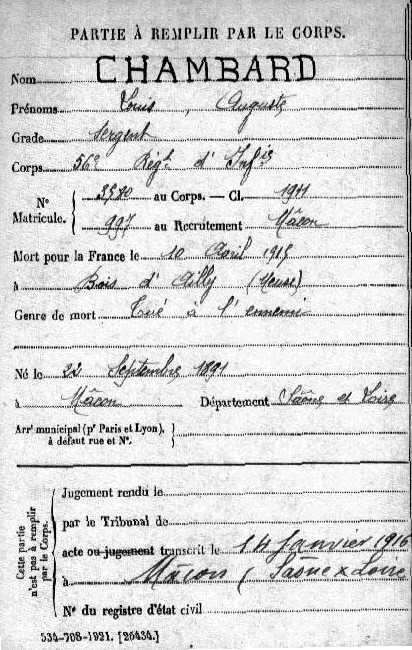 PARTIE À REMPLIR PAR LE CORPS.
Nom CHAMBARD
Prénoms Louis, Auguste
Grade Sergent
Corps 56e Régt d'Infie
N° Matricule. { 3580 au Corps. — Cl. 1911
997 au Recrutement Mâcon
Mort pour la France le 10 Avril 1915
à Bois d'Ailly (Meuse)
Genre de mort Tué à l'ennemi
Né le 22 Septembre 1891
à Mâcon Département Saône et Loire
Arrt municipal (pr Paris et Lyon), à défaut rue et N°. }
Cette partie n'est pas à remplir par le Corps. {
Jugement rendu le
par le Tribunal de
acte ou jugement transcrit le 14 Janvier 1916
à Mâcon (Saône & Loire
N° du registre d'état civil
534-708-1921. [26434.]